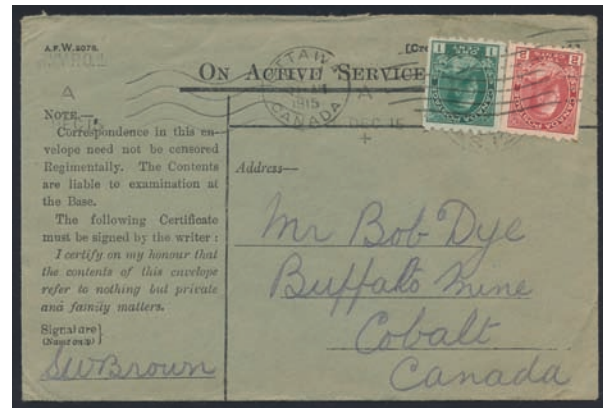 A.F.W.3078.
[Cre
ON ACTIVE SERVICE
OTTAWA
1915
CANADA
A
A
DEC 15
+
1 1
2 2
NOTE.—
Correspondence in this en-
velope need not be censored
Regimentally. The Contents
are liable to examination at
the Base.
The following Certificate
must be signed by the writer :
I certify on my honour that
the contents of this envelope
refer to nothing but private
and family matters.
Signature }
(Name only)
SW Brown
Address—
Mr Bob Dye
Buffalo Mine
Cobalt
Canada